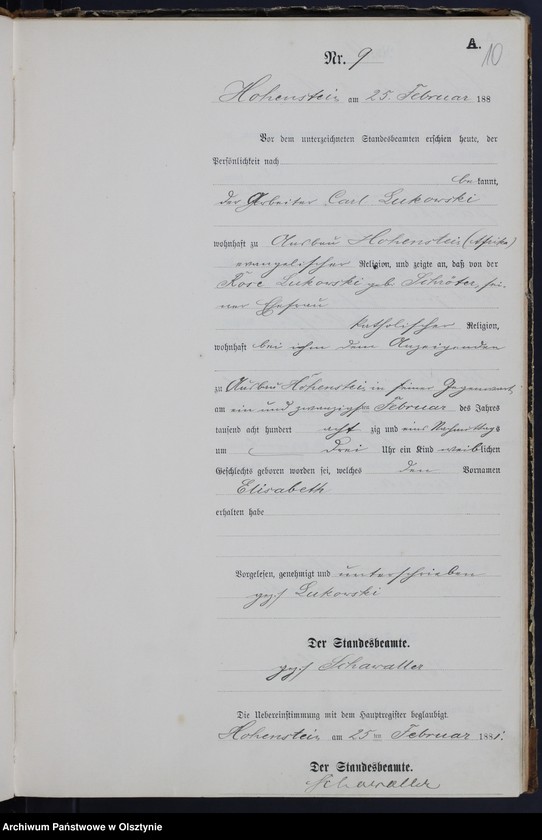 A.
10
Nr. 9
Hohenstein am 25. Februar 188
Vor dem unterzeichneten Standesbeamten erschien heute, der
Persönlichkeit nach
be kannt,
der Arbeiter Carl Lukowski
wohnhaft zu Ausbau Hohenstein (Afrika)
evangelischer Religion, und zeigte an, daß von der
Rose Lukowski geb. Schröter, sei-
ner Ehefrau
katholischer Religion,
wohnhaft bei ihm dem Anzeigenden
zu Ausbau Hohenstein in seiner Gegenwart
am ein und zwanzigsten Februar des Jahres
tausend acht hundert acht zig und eins Nachmittags
um drei Uhr ein Kind weib lichen
Geschlechts geboren worden sei, welches den Vornamen
Elisabeth
erhalten habe
Vorgelesen, genehmigt und unterschrieben
gez. Lukowski
Der Standesbeamte.
gez. Schawaller
Die Uebereinstimmung mit dem Hauptregister beglaubigt.
Hohenstein am 25ten Februar 1881.
Der Standesbeamte.
Schawaller
Archiwum Państwowe w Olsztynie